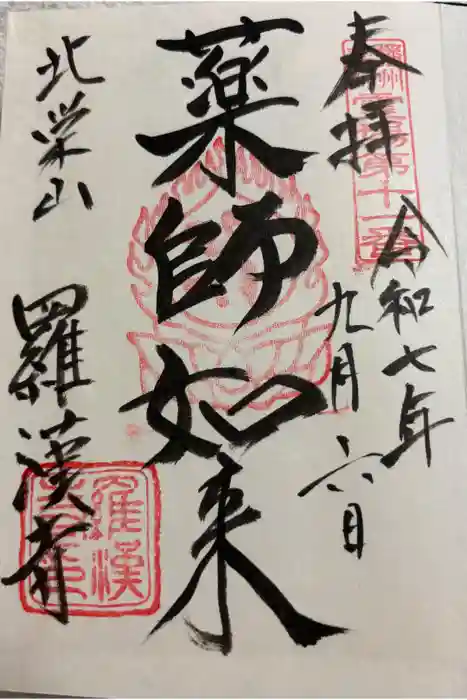 奉拝
令和七年
九月六日
薬師如来
北栄山
羅漢寺
播州
霊場第十一番
羅漢